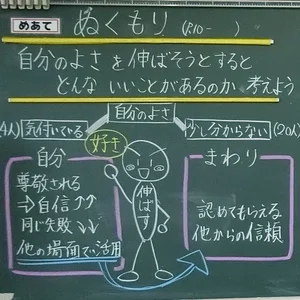 めあて ぬくもり (P10- )
自分のよさ を 伸ばそうとすると
どんな いいことがあるのか 考えよう
自分のよさ
4人) 気付いている
少し分からない (20人
好き
自分
まわり
伸ばす
尊敬される
⇒自信↑↑
同じ失敗↓↓
他の場面で活用
認めてもらえる
他からの信頼